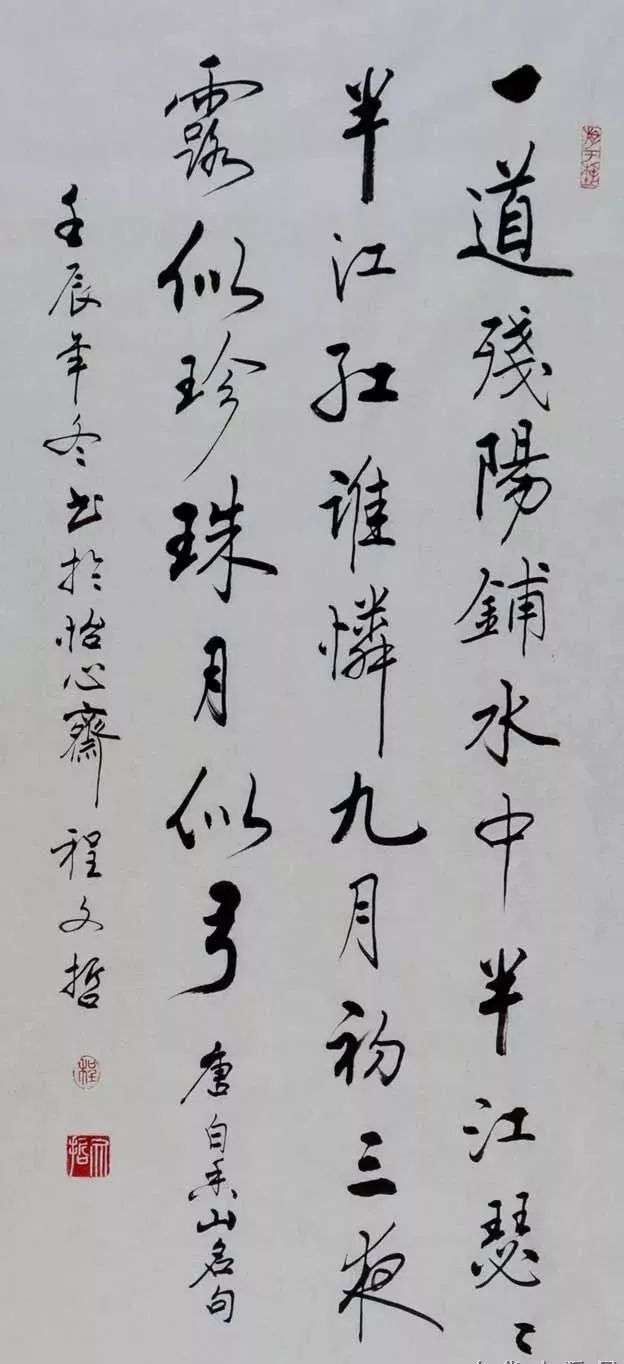 一道殘陽鋪水中半江瑟〻
半江紅誰憐九月初三夜
露似珍珠月似弓
唐白香山名句
壬辰年冬書於怡心齋 程文哲
程
文哲